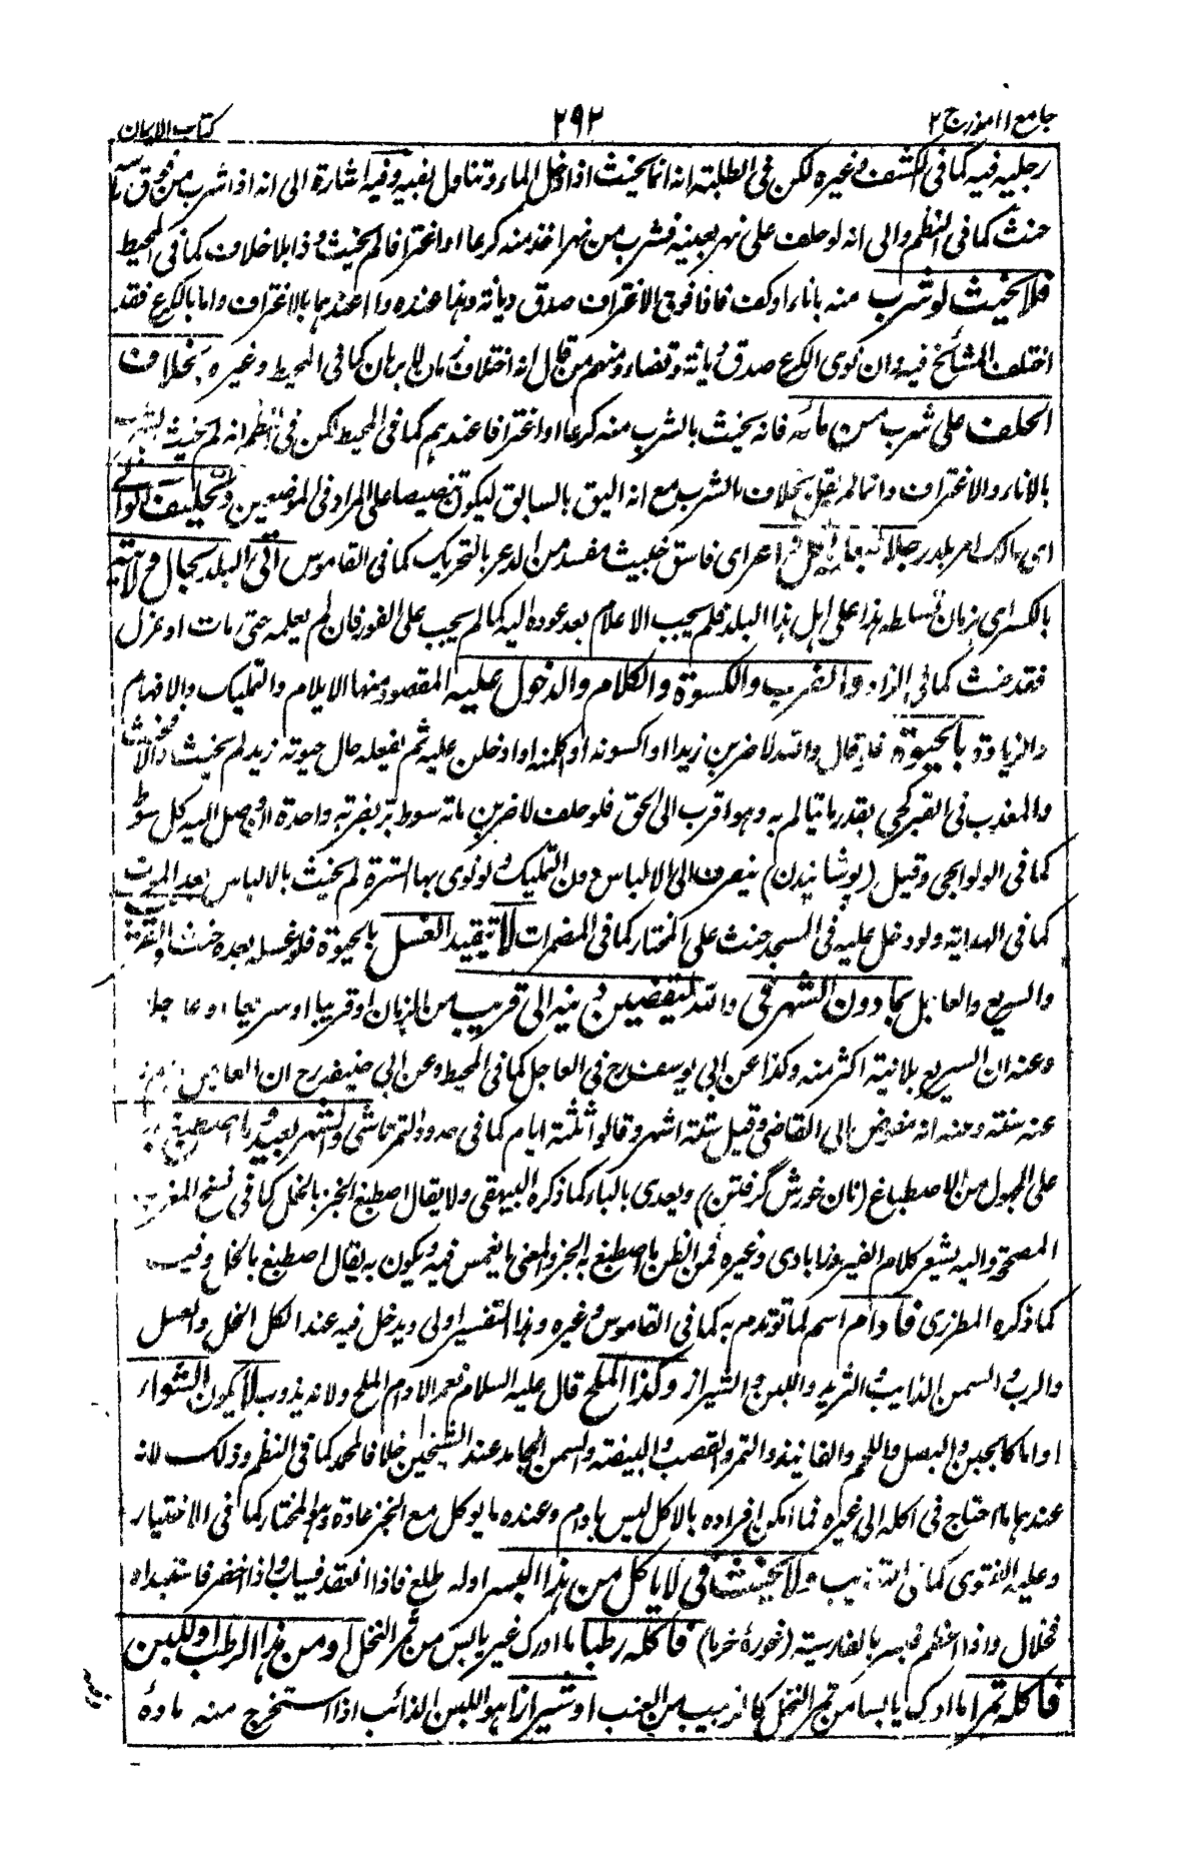 جامع الرموز ج ٢
٢٩٢
كتاب الايمان
رجليه فيه كما فى الكشف وغيره لكن فى الطلبة انه انما يحنث اذا دخل الماء وتناول بفيه وفيه اشارة الى انه اذا شرب من فوق
حنث كما فى النظم والى انه لو حلف على نهر بعينه فشرب من نهر اخذ منه كرعا او اغترافا لم يحنث وذا بلا خلاف كما فى المحيط
فلا يحنث لو شرب منه باناء او كف فاذا نوى الاغتراف صدق ديانة وهذا عنده واما عندهما بالاغتراف واما بالكرع فقد
اختلف المشائخ فيه وان نوى الكرع صدق ديانة وقضاء ومنهم من قال انه اختلاف زمان لا برهان كما فى المحيط وغيره بخلاف
الحلف على شرب من مائه فانه يحنث بالشرب منه كرعا او اغترافا عندهم كما فى المحيط لكن فى النظم انه لم يحنث بشرب
بالاناء والاغتراف وانما لم يقل بخلاف الشرب مع انه اليق بالسابق ليكون تنصيصا على المراد فى الموضعين وتحليف الوالى
اى مالك امر بلد رجلا ليعلمه بكل داعر اى فاسق خبيث مفسد من الدعر بالتحريك كما فى القاموس اتى البلد بحال ولايته
بالكسر اى بزمان تسلطه هذا على اهل هذا البلد فلم يجب الاعلام بعد عوده اليه كما لم يجب على الفور فان لم يعلمه حتى مات او عزل
فقد حنث كما فى الزاد والضرب والكسوة والكلام والدخول عليه المقصود منها الايلام والتمليك والافهام
والزيارة بالحيوة فلو قال والله لاضربن زيدا او اكسونه او اكلمنه او ادخلن عليه ثم يفعله حال حيوة زيد لم يحنث والا فيحنث
والمعذب فى القبر كحى بقدر ما يتألم به وهو اقرب الى الحق فلو حلف لاضربن مائة سوط بر بضربة واحدة ان وصل اليه كل سوط
كما فى الولوالجى وقيل (پوشانيدن) ينصرف الى الالباس دون التمليك ولو نوى بها السترة لم يحنث بالالباس بعد الموت
كما فى الهداية ولو دخل عليه فى المسجد حنث على المختار كما فى المضمرات لا يتقيد الغسل بالحيوة فلو غسله بعده حنث والقريب
والسريع والعاجل بما دون الشهر فى والله ليقضين دينه الى قريب من الزمان او قريبا او سريعا او عاجلا
وعنه ان السريع بلا نية اكثر منه وكذا عن ابى يوسف رح فى العاجل كما فى المحيط وعن ابى حنيفة رح ان العاجل
عنه سنة وعنه انه مفوض الى القاضى وقيل ستة اشهر وقالوا ثلثة ايام كما فى حدود التمرتاشى والشهر بعيد وما اصطبغ به
على المجهول من الاصطباغ (نان خورش گرفتن) ويعدى بالباء كما ذكره البيهقى ولا يقال اصطبغ الخبز بالخل كما فى نسخ المغرب
المصححة واليه يشير كلام الفيروزابادى وغيره فمن الظن ما اصطبغ به الخبز والمعنى ما يغمس فيه ويكون به يقال اصطبغ بالخل وفيه
كما ذكره المطرزى فادام اسم لما تؤتدم به كما فى القاموس وغيره وهذا التفسير اولى ويدخل فيه عند الكل الخل والعسل
والرب والسمن الذايب والثريد واللبن والشيراز وكذا الملح قال عليه السلام نعم الادام الملح ولانه يذوب لا يكون الشواء
اداما كالجبن والبصل واللحم والفانيذ والتمر والقصب والبيضة والسمن الجامد عند الشيخين خلافا لمحمد كما فى النظم وذلك لانه
عندهما ما احتاج فى اكله الى غيره فما امكن افراده بالاكل ليس بادام وعنده ما يوكل مع الخبز عادة وهو المختار كما فى الاختيار
وعليه الفتوى كما فى التهذيب ولا يحنث فى لا ياكل من هذا البسر اوله طلع فاذا انعقد فسياب واذا اخضر فاستبداه
فخلال واذا اعظم فبسر بالفارسية (غورهٔ خرما) فاكله رطبا ما ادرك غير يابس من تمر النخل او من هذا الرطب او اللبن
فاكله تمرا ما ادرك يابسا من تمر النخل كالزبيب من العنب او شيرازا هو اللبن الذائب اذا استخرج منه ماؤه